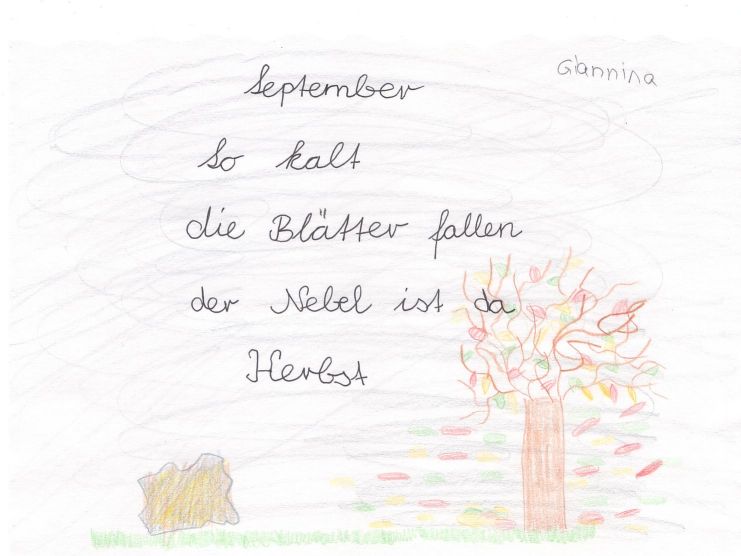 Giannina
September
So kalt
die Blätter fallen
der Nebel ist da
Herbst